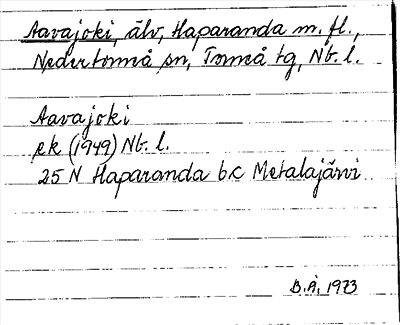 Aavajoki, älv, Haparanda m. fl.,
Nedertorneå sn, Torneå tg, Nb. l.
Aavajoki
ek (1949) Nb. l.
25 N Haparanda b c Metalajärvi
B.Å. 1973